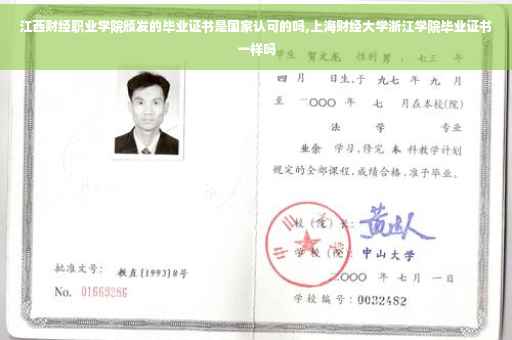 江西财经职业学院颁发的毕业证书是国家认可的吗,上海财经大学浙江学院毕业证书
一样吗
学生 贺文龙 性别 男 , 七三 年
四 月 日生,于 九七 年 九 月
至 二〇〇〇 年 七 月在本校(院)
法 学 专业
业余 学习,修完 本 科教学计划
规定的全部课程,成绩合格,准予毕业。
校(院)长:
学校(院): 中山大学
二〇〇〇 年 七 月 一 日
批准文号: 教直(1993)8号
No. 01669286
学校编号: 0032482